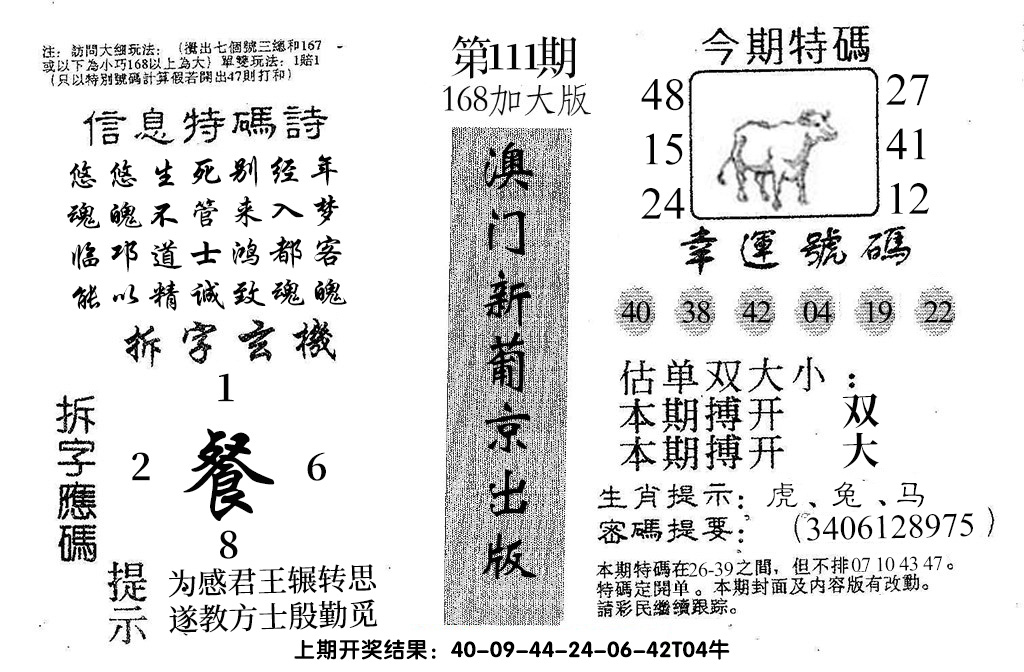 注：訪問大细玩法：（攪出七個號三總和167
或以下為小巧168以上為大）單雙玩法：1賠1
（只以特別號碼計算假若開出47則打和）
信息特碼詩
悠悠生死别经年
魂魄不管来入梦
临邛道士鸿都客
能以精诚致魂魄
拆字玄機
1
拆字應碼
2 餐 6
8
提示
为感君王辗转思
遂教方士殷勤觅
第111期
168加大版
澳门新葡京出版
今期特碼
48 27
15 41
24 12
幸運號碼
40 38 42 04 19 22
估单双大小：
本期搏开 双
本期搏开 大
生肖提示：虎、兔、马
密碼提要：（3406128975）
本期特碼在26-39之間，但不排07 10 43 47。
特碼定開单。本期封面及内容版有改動。
請彩民繼續跟踪。
上期开奖结果：40-09-44-24-06-42T04牛